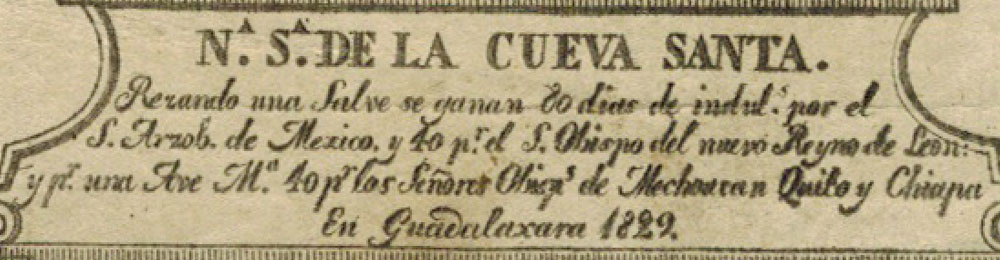 N.ᴬ S.ᴬ DE LA CUEVA SANTA.
Rezando una Salve se ganan 80 dias de indul.ˢ por el
S. Arzob. de Mexico, y 40 p.ʳ el S. Obispo del nuevo Reyno de Leon:
y p.ʳ una Ave M.ᵃ 40 p.ʳ los Señores Obisp.ˢ de Mechoacan Quito y Chiapa
En Guadalaxara 1829.